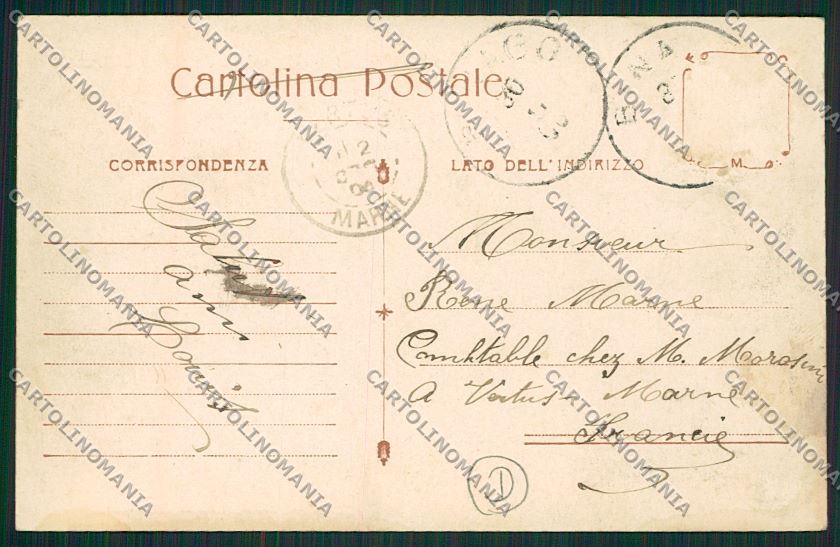 Cartolina Postale
CORRISPONDENZA
LATO DELL'INDIRIZZO
MARNE
ENA
M
Salut
ami
Louis
Monsieur
Rene Marne
Comhtable chez M. Morasini
A Vertus Marne
Francie
CARTOLINOMANIA